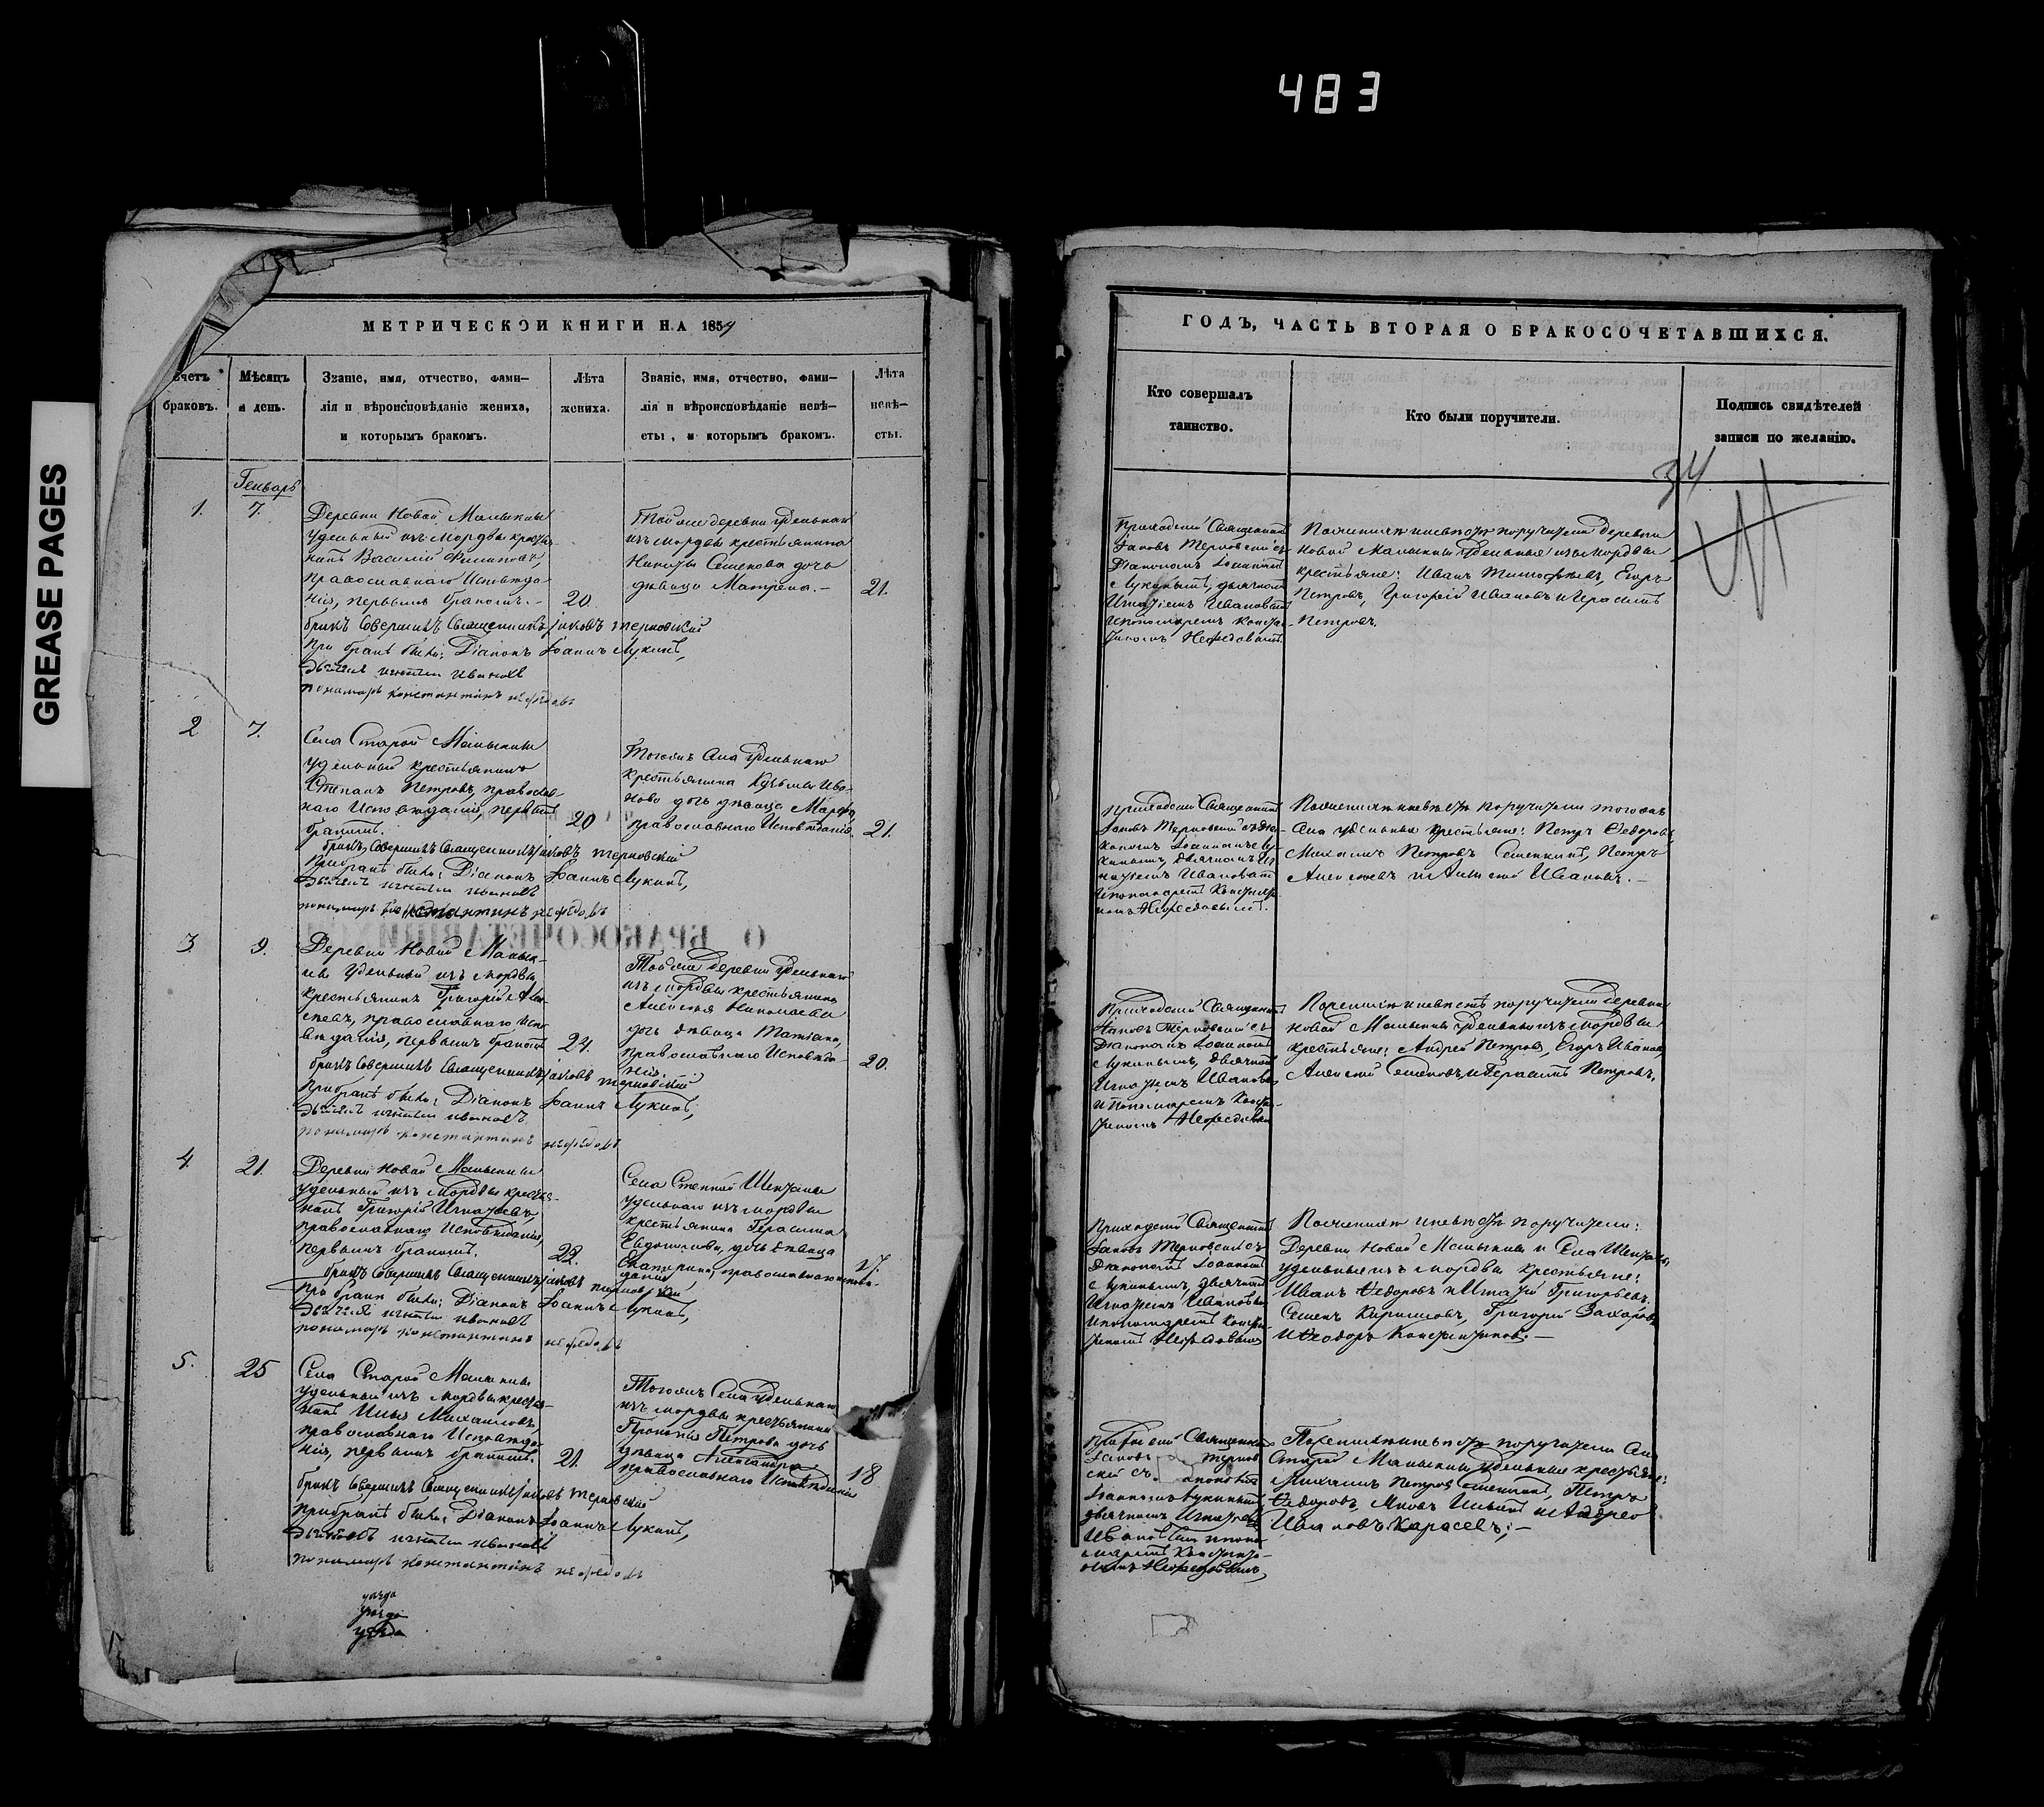 483
GREASE PAGES
МЕТРИЧЕСКОИ КНИГИ НА 1854
Счетъ браковъ.
Мѣсяцъ и день.
Званіе, имя, отчество, фами-
лія и вѣроисповѣданіе жениха,
и которымъ бракомъ.
Лѣта жениха.
Званіе, имя, отчество, фами-
лія и вѣроисповѣданіе невѣ-
сты, и которымъ бракомъ.
Лѣта невѣ-
сты.
Генварь
1.
7.
Деревни Новой Малыклы
удѣльный изъ мордвы крестья-
нинъ Василій Филиповъ,
православнаго Исповѣда-
нія, первымъ бракомъ.-
20.
Той же деревни удѣльнаго
изъ мордвы крестьянина
Никиты Семенова дочь
дѣвица Матрена.-
21.
бракъ совершилъ Священникъ Іаковъ Терновскій
При бракѣ были: Діаконъ Іоаннъ Лукинъ,
Дьячекъ Игнатій Ивановъ
пономарь Константинъ Нефедовъ
2
7.
Села Старой Малыклы
удѣльный крестьянинъ
Степанъ Петровъ, православ-
наго Исповѣданія, первымъ
бракомъ.
20
Тогожъ Села удѣльнаго
крестьянина Кузьмы Ива-
нова дочь дѣвица Марфа,
православнаго Исповѣданія.
21.
бракъ совершилъ Священникъ Іаковъ Терновскій
При бракѣ были: Діаконъ Іоаннъ Лукинъ,
Дьячекъ Игнатій Ивановъ
пономарь Константинъ Нефедовъ
3.
9.
Деревни Новой Малык-
лы удѣльный изъ мордвы
крестьянинъ Григорій Алек-
сѣевъ, православнаго Испо-
вѣданія, первымъ бракомъ
24.
Той же деревни удѣльнаго
изъ мордвы крестьянина
Алексѣя Николаева
дочь дѣвица Татіана,
православнаго Исповѣда-
нія.
20.
бракъ совершилъ Священникъ Іаковъ Терновскій
При бракѣ были: Діаконъ Іоаннъ Лукинъ,
Дьячекъ Игнатій Ивановъ
пономарь Константинъ Нефедовъ
4.
21.
Деревни Новой Малыклы
удѣльный изъ Мордвы крестья-
нинъ Григорій Игнатьевъ,
православнаго Исповѣданія,
первымъ бракомъ.
22.
Села Степной Шенталы
удѣльнаго изъ мордвы
крестьянина Герасима
Евдокимова, дочь дѣвица
Екатерина, православнаго испове-
данія
бракъ совершилъ Священникъ Іаковъ Терновскій
При бракѣ были: Діаконъ Іоаннъ Лукинъ,
Дьячекъ Игнатій Ивановъ
пономарь Константинъ Нефедовъ
5.
25
Села Старой Малыклы
удѣльный изъ Мордвы крестья-
нинъ Илья Михайловъ,
православнаго Исповѣда-
нія, первымъ бракомъ.
21.
Тогожъ Села удѣльнаго
изъ мордвы крестьянина
Прокопія Петрова дочь
дѣвица Александра
православнаго Исповѣданія
18
бракъ совершилъ Священникъ Іаковъ Терновскій
При бракѣ были: Діаконъ Іоаннъ Лукинъ,
Дьячекъ Игнатій Ивановъ
пономарь Константинъ Нефедовъ
ГОДЪ, ЧАСТЬ ВТОРАЯ О БРАКОСОЧЕТАВШИХСЯ.
Кто совершалъ
таинство.
Кто были поручители.
Подпись свидѣтелей
записи по желанію.
34
Приходскій Священникъ
Іаковъ Терновскій съ
Діакономъ Іоанномъ
Лукинымъ, дьячкомъ
Игнатіемъ Ивановымъ
и пономаремъ Конста-
нтиномъ Нефедовымъ.
По женихѣ и невѣстѣ поручители деревни
Новой Малыклы удѣльные изъ мордвы
крестьяне: Иванъ Тимофѣевъ, Егоръ
Петровъ, Григорій Ивановъ и Герасимъ
Петровъ.
Приходскій Священникъ
Іаковъ Терновскій съ Діа-
кономъ Іоанномъ Лу-
кинымъ, дьячкомъ Иг-
натіемъ Ивановымъ
и пономаремъ Константи-
номъ Нефедовымъ.
По женихѣ и невѣстѣ поручители тогожъ
Села удѣльные крестьяне: Петръ Федоровъ,
Михаилъ Петровъ Сменкинъ, Петръ
Алексѣевъ и Алексѣй Ивановъ.-
Приходскій Священникъ
Іаковъ Терновскій съ
Діакономъ Іоанномъ
Лукинымъ, дьячкомъ
Игнатіемъ Ивановымъ
и Пономаремъ Конста-
нтиномъ Нефедовымъ
По женихѣ и невѣстѣ поручители деревни
Новой Малыклы удѣльные изъ мордвы
крестьяне: Андрей Петровъ, Егоръ Ивановъ,
Алексѣй Семеновъ, и Герасимъ Петровъ.
Приходскій Священникъ
Іаковъ Терновскій съ
Діакономъ Іоанномъ
Лукинымъ, дьячкомъ
Игнатіемъ Ивановымъ
и пономаремъ Конста-
нтиномъ Нефедовымъ
По женихѣ и невѣстѣ поручители:
Деревни Новой Малыклы и Села Шенталы,
удѣльные изъ мордвы крестьяне:
Иванъ Федоровъ и Игнатій Григорьевъ.
Семенъ Кириловъ, Григорій Захаровъ
и Ѳеодоръ Константиновъ.-
Священникъ
Іаковъ Тернов-
скій съ
Іоанномъ Лукинымъ
дьячкомъ Игнатіемъ
Ивановымъ и поно-
маремъ Константи-
номъ Нефедовымъ,
По женихѣ и невѣстѣ поручители Села
Старой Малыклы удѣльные крестьяне:
Михаилъ Петровъ Сменкинъ, Петръ
Федоровъ, Яковъ Ильинъ и Андрей
Ивановъ Карасевъ;-